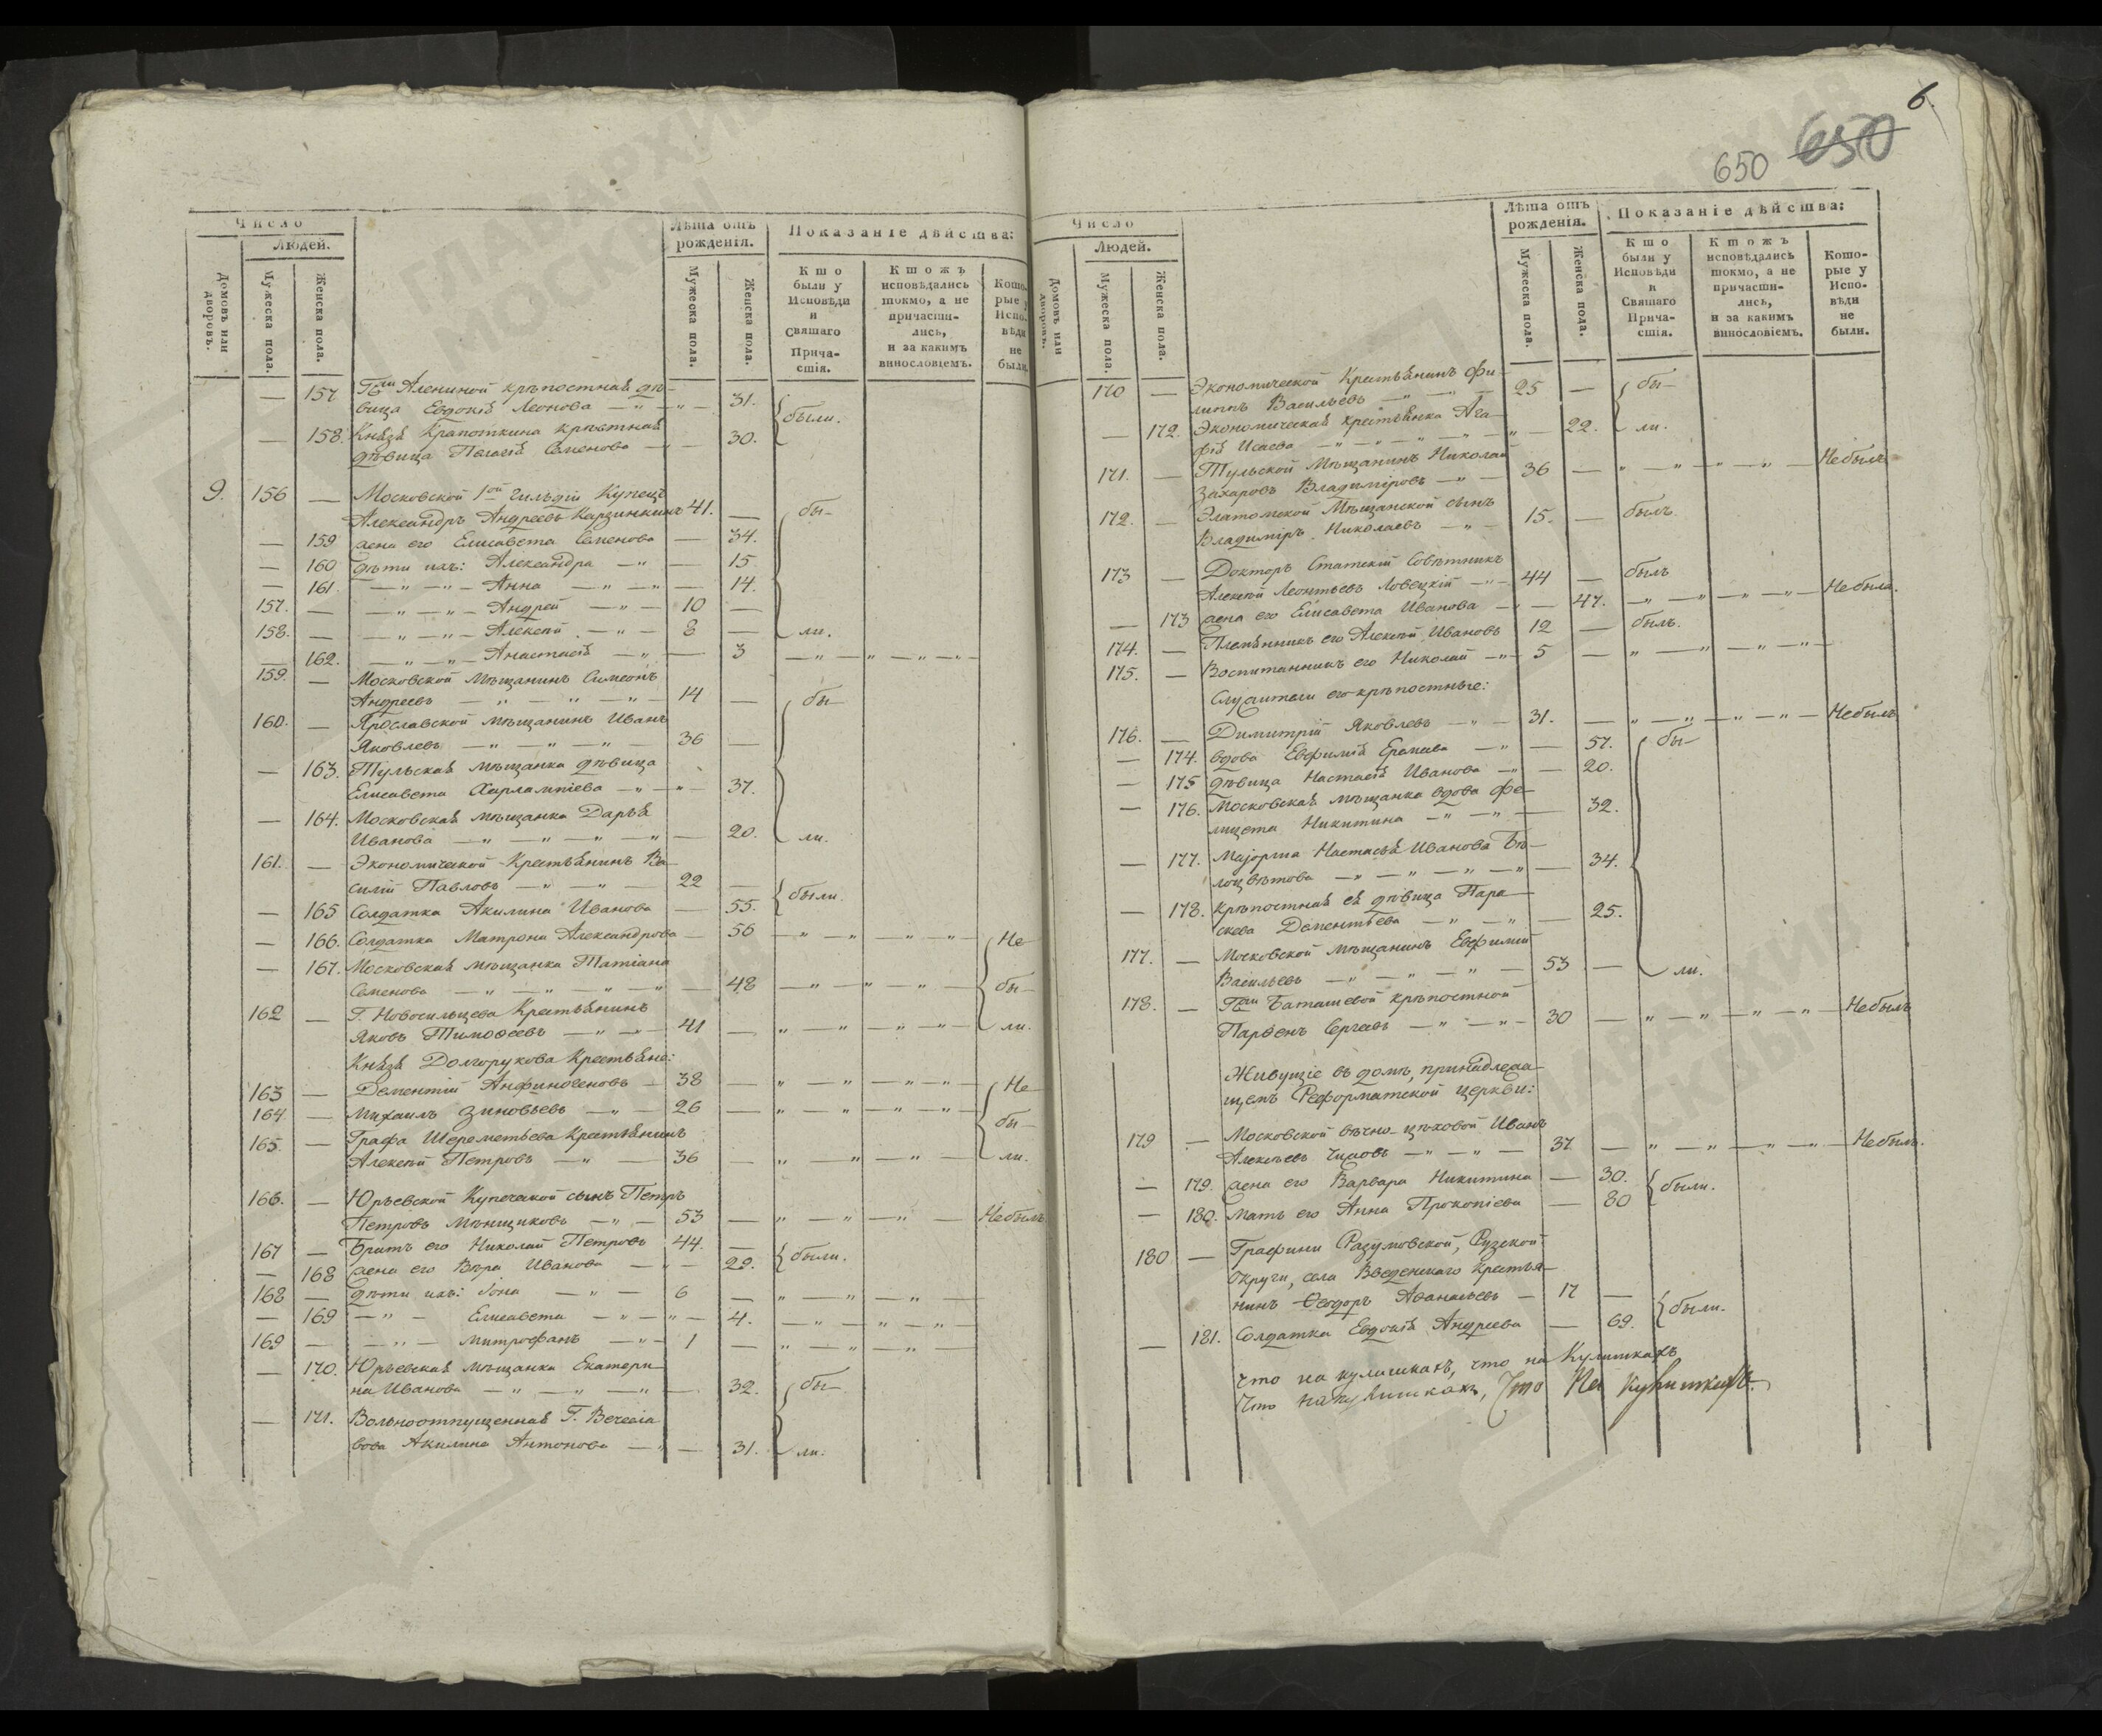 Число
Людей.
Домовъ или дворовъ.
Мужеска пола.
Женска пола.
Лѣта отъ рожденія.
Мужеска пола.
Женска пола.
Показаніе дѣйства:
Кто были у Исповѣди и Святаго Причастія.
Ктожъ исповѣдались токмо, а не причастились, и за какимъ винословіемъ.
Которые у Исповѣди не были.
— 157 Г-жи Алениной крѣпостная дѣ-
вица Евдокія Леонова — „ — 31. были.
— 158. Князя Крапоткина крѣпстная
дѣвица Пелагія Семенова — 30.
9. 156 — Московской 1ой гильдіи Купецъ
Александръ Андреевъ Карзинкинъ 41. — бы-
— 159 жена его Елисавета Семенова — 34.
— 160 дѣти ихъ: Александра — „ — 15
— 161. — „ — „ — Анна — „ — „ — 14.
157. — — „ — „ — Андрей — „ — 10 —
158. — — „ — „ — Алексѣй — „ — 8 — ли.
— 162. — „ — „ — Анастасія — „ — 3 — „ — „ — „ — „ —
159. — Московской Мѣщанинъ Симеонъ
Андреевъ — „ — „ — „ — 14 — бы-
160. — Ярославской мѣщанинъ Иванъ
Яковлевъ — „ — „ — „ — 36 —
— 163. Тульская мѣщанка дѣвица
Елисавета Харлампіева — „ — „ — 37.
— 164. Московская мѣщанка Дарья
Иванова — „ — „ — „ — „ — 20. ли.
161. — Экономической Крестьянинъ Ва-
силій Павловъ — „ — „ — 22 — были.
— 165 Солдатка Акилина Иванова — 55.
— 166. Солдатка Матрона Александрова — 56 — „ — „ — „ — „ — Не-
— 167. Московская мѣщанка Татіана
Семенова — „ — „ — „ — „ — 48 — „ — „ — „ — бы-
162 — Г. Новосильцева Крестьянинъ
Яковъ Тимоѳеевъ — „ — „ — 41 — „ — „ — „ — „ — ли.
Князя Долгорукова Крестьяне:
163 — Дементій Анфиногеновъ — 38 — „ — „ — „ — „ — Не-
164 — Михаилъ Зиновьевъ — „ — 26 — „ — „ — „ — „ —
165 — Графа Шереметьева Крестьянинъ бы-
Алексѣй Петровъ — „ — 36 — „ — „ — „ — ли.
166. — Юрьевской Купеческой сынъ Петръ
Петровъ Мѣнщиковъ — „ — 53 — „ — „ — „ — Небылъ.
167 — Братъ его Николай Петровъ 44. — были.
— 168 жена его Вѣра Иванова — „ — 29.
168 — дѣти ихъ: Іона — „ — 6 — „ — „ — „ —
— 169 — „ — Елисавета — „ — „ — 4. — „ — „ — „ — „ —
169 — — „ — Митрофанъ — „ — 1 — „ — „ — „ —
— 170. Юрьевская мѣщанка Екатери-
на Иванова — „ — „ — „ — 32. бы-
— 171. Вольноотпущенная Г.
Акилина Антонова — „ — 31. ли.
6.
650 650
Число
Людей.
Домовъ или дворовъ.
Мужеска пола.
Женска пола.
Лѣта отъ рожденія.
Мужеска пола.
Женска пола.
Показаніе дѣйства:
Кто были у Исповѣди и Святаго Причастія.
Ктожъ исповѣдались токмо, а не причастились, и за какимъ винословіемъ.
Которые у Исповѣди не были.
170 — Экономической Крестьянинъ Фи-
липпъ Васильевъ — „ — „ — 25 — бы-
— 172. Экономическая крестьянка Ага-
фія Исаева — „ — „ — „ — „ — 22. ли.
171. — Тульской Мѣщанинъ Николай
Захаровъ Владиміровъ — „ — 36 — „ — „ — „ — „ — Небылъ
172. — Элатомской Мѣщанской сынъ
Владиміръ Николаевъ — „ — 15. — былъ.
173 — Докторъ Статскій Совѣтникъ
Алексѣй Леонтьевъ Ловецкій — „ — 44 — былъ
— 173 жена его Елисавета Иванова — „ — 47. — „ — „ — „ — „ — Небыла.
174. — Племянникъ его Алексѣй Ивановъ 12 — былъ.
175. — Воспитанникъ его Николай — „ — 5 — „ — „ — „ — „ —
Служители его крѣпостные:
176. — Димитрій Яковлевъ — „ — 31. — „ — „ — „ — „ — Небылъ
— 174. вдова Евфимія Ермева — „ — 57. бы-
— 175 дѣвица Настасія Иванова — „ — 20.
— 176. Московская мѣщанка вдова Фе-
лицета Никитина — „ — „ — 32.
— 177. Маіорша Настасья Иванова Бѣ-
лоцвѣтова — „ — „ — „ — „ — 34.
— 178. Крѣпостная ея дѣвица Пара-
скева Дементьева — „ — „ — 25.
177. — Московской мѣщанинъ Евфимій
Васильевъ — „ — „ — „ — 53 — ли.
178. — Г-жи Баташевой крѣпостной
Парѳенъ Сергеевъ — „ — „ — 30 — „ — „ — „ — „ — Небылъ
Живущіе въ домѣ, принадлежа-
щемъ Реформатской церкви:
179 — Московской вѣчно-цѣховой Иванъ
Алексѣевъ — „ — „ — 37 — „ — „ — „ — „ — Небылъ.
— 179. жена его Варвара Никитина — 30. были.
— 180. Мать его Анна Прокопіева — 80
180 — Графини Разумовской, Рузской
округи, села Введенскаго Крестья-
нинъ Ѳеодоръ Аѳанасьевъ — 17 — были.
— 181. Солдатка Евдокія Андреева — 69.
Что на кулишкахъ, что на Кулишкахъ
Что на кулишкахъ, Что На Кулишкахъ.